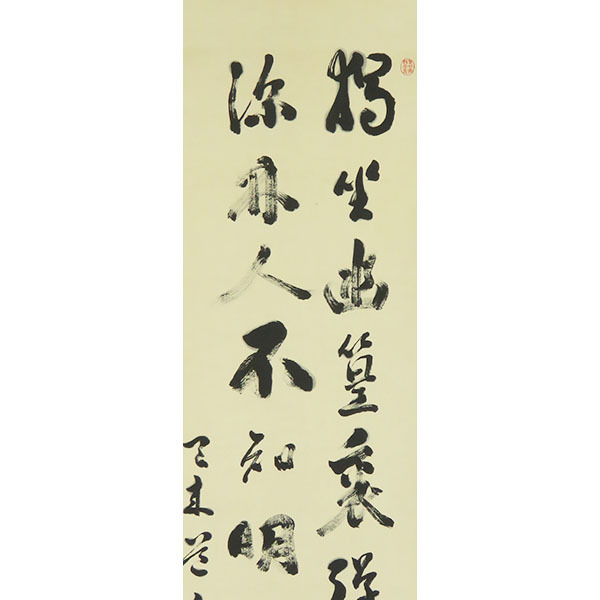 獨坐幽篁裏彈
深林人不知明
未